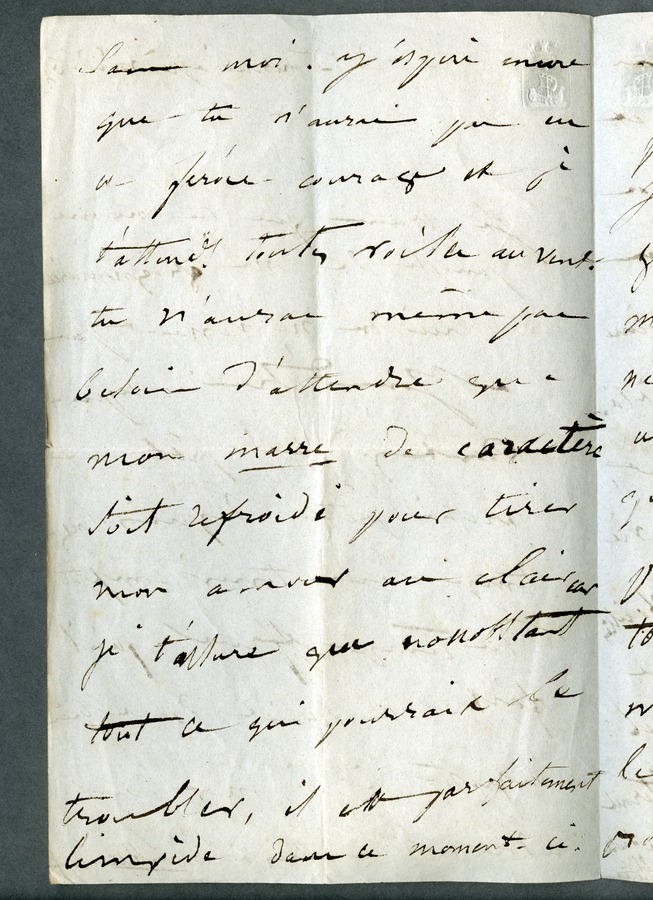 Sans moi. j'espère encore
que tu n'auras pas eu
ce féroce courage et je
t'attends toutes voiles au vent.
tu n'auras même pas
besoin d'attendre que
mon marre de caractère
soit refroidi pour tirer
mon amour au clair car
je t'assure que nonobstant
tout ce qui pourrait le
troubler, il est parfaitement
limpide dans ce moment-ci.